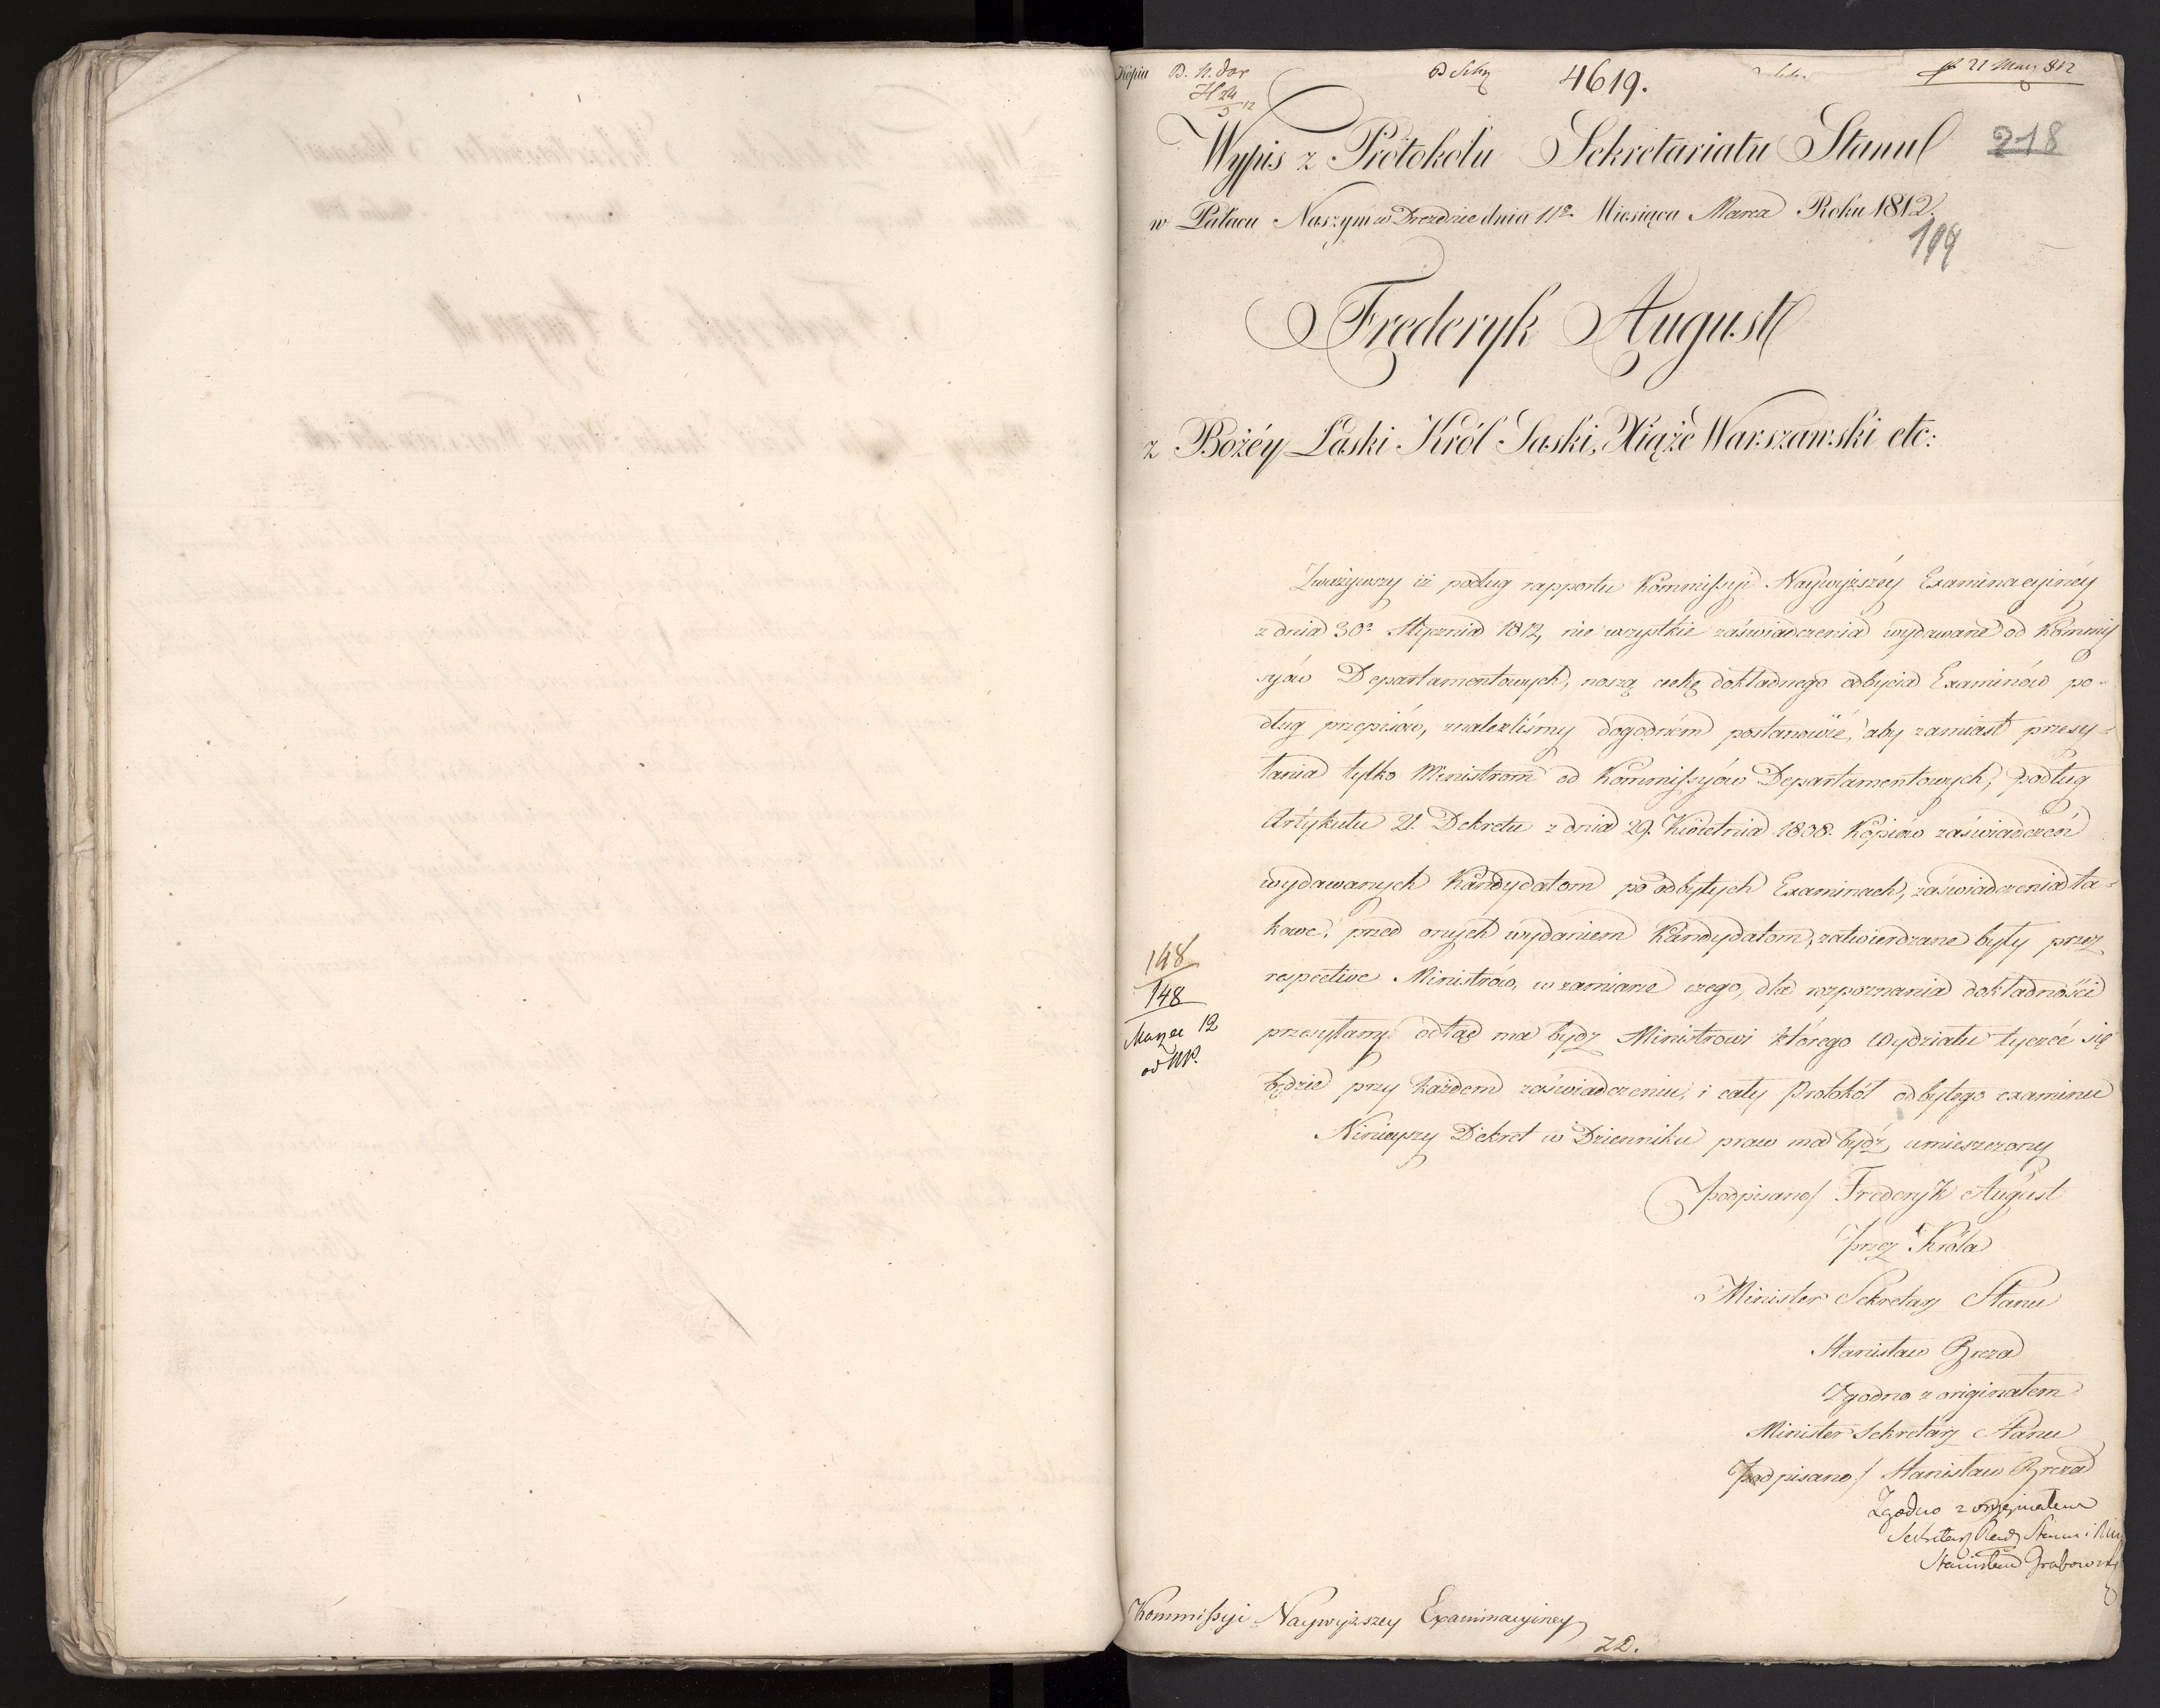 Kopia
4619.
21 Mar 812
Wypis z Protokołu Sekretariatu Stanu
218
w Pałacu Naszym w Dreznie dnia 11º Miesiąca Marca Roku 1812.
Frederyk August
z Bożéy Łaski Król Saski, Xiąże Warszawski etc:
Zważywszy iż podług rapportu Kommissyi Naywyższéy Examinacyinéy
z dnia 30º Stycznia 1812, nie wszystkie zaświadczenia wydawane od Kommis
syów Departamentowych, noszą cechę dokładnego odbycia Examinów po-
dług przepisów, znaleźliśmy dogodném postanowić, aby zamiast przesy-
łania tylko Ministrom od Kommissyów Departamentowych, podług
Artykułu 21. Dekretu z dnia 29. Kwietnia 1808. Kopiów zaświadczeń
wydawanych Kandydatom po odbytych Examinach, zaświadczenia ta-
kowe, przed onych wydaniem Kandydatom, zatwierdzane były przez
respective Ministrów, w zamianę czego, dla rozpoznania dokładności
przesyłany odtąd ma bydz Ministrowi którego Wydziału tyczéć się
będzie przy każdem zaświadczeniu, i cały Protokół odbytego examinu
Ninieyszy Dekret w Dzienniku praw ma bydź umieszczony
148
148
Marzec 12
od NP.
podpisano/ Frederyk August
przez Króla
Minister Sekretarz Stanu
Stanisław Breza
Zgodno z originałem
Minister Sekretarz Stanu
Podpisano/ Stanisław Breza
Zgodno z oryginałem
Sekretarz Rady Stanu i Min
Stanisław Grabowski
Kommissyi Naywyższey Examinacyiney